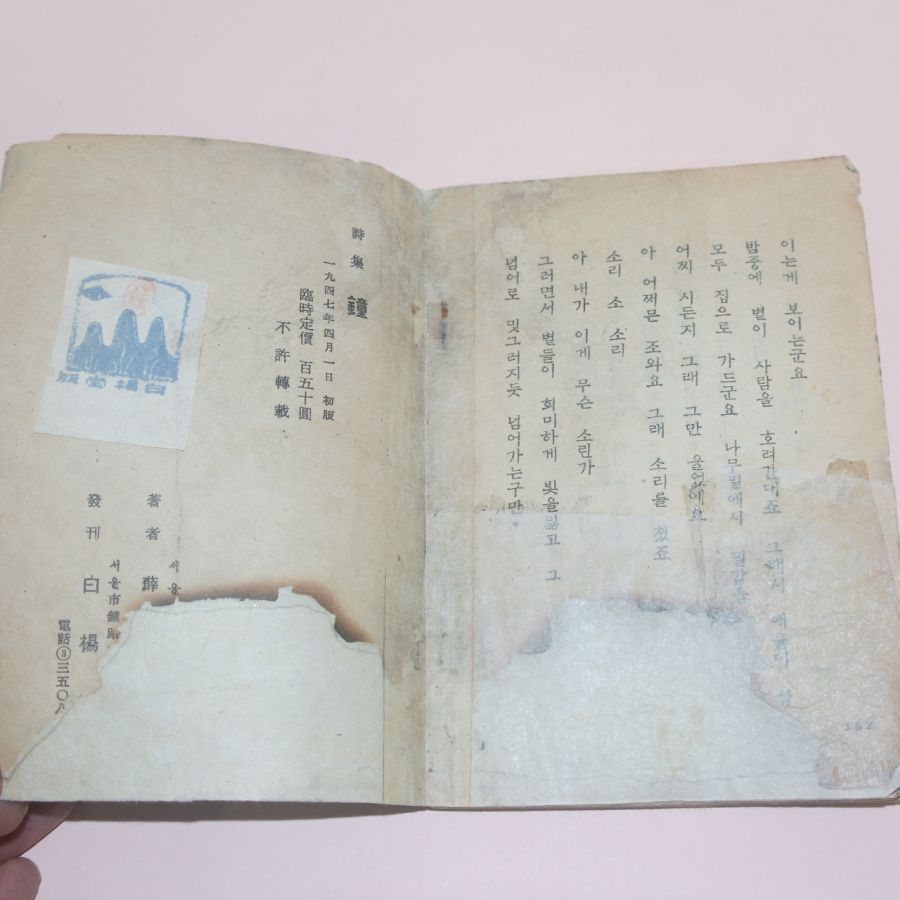 이는게 보이는군요
밤중에 별이 사람을 호려간대죠 그래서 애들이
모두 집으로 가드군요 나무밑에서 밀감을
어찌 시든지 그래 그만 울었에요
아 어쩌믄 조와요 그래 소리를 쳤죠
소리 소 소리
아 내가 이게 무슨 소린가
그러면서 별들이 희미하게 빛을잃고 그
넘어로 밋그러지듯 넘어가는구만.
162
詩集 鐘
一九四七年四月一日 初版
臨時定價 百五十圓
不許轉載
著者 薛
서울
發刊 白楊
서울市鍾路
電話③三五〇八
白楊堂版